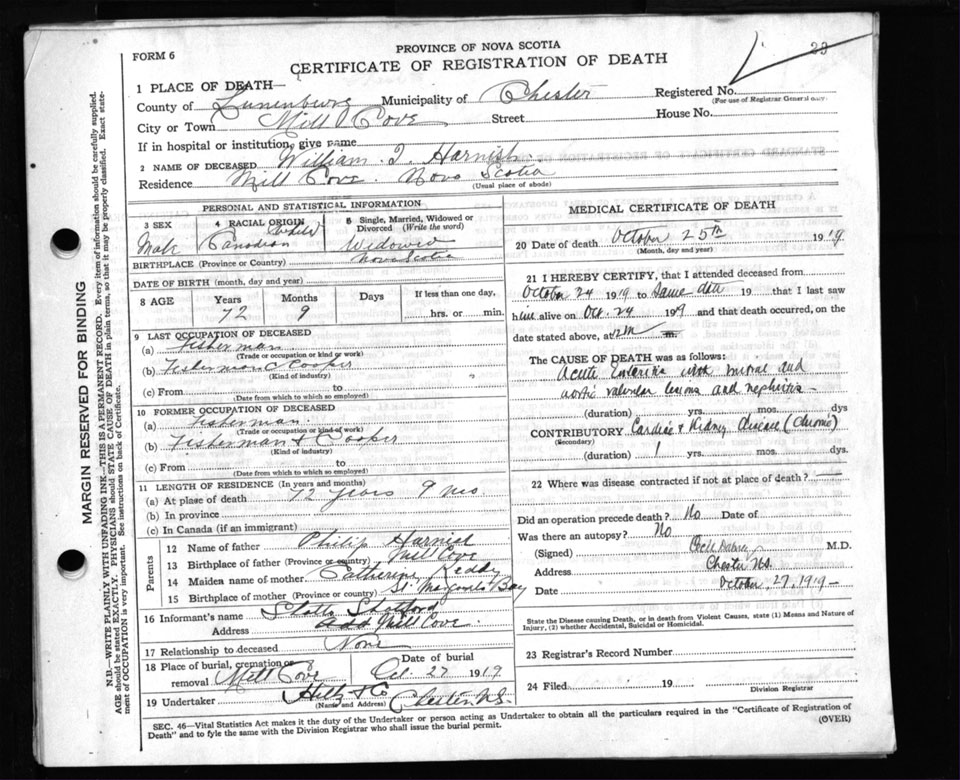 FORM 6
PROVINCE OF NOVA SCOTIA
CERTIFICATE OF REGISTRATION OF DEATH
29
1 PLACE OF DEATH—
County of Lunenburg Municipality of Chester Registered No.
(For use of Registrar General only)
City or Town Mill Cove Street House No.
If in hospital or institution, give name
2 NAME OF DECEASED William . Harnish
Residence Mill Cove. Nova Scotia
(Usual place of abode)
PERSONAL AND STATISTICAL INFORMATION
3 SEX Male
4 RACIAL ORIGIN White Canadian
5 Single, Married, Widowed or Divorced (Write the word)
Widowed
BIRTHPLACE (Province or Country) Nova Scotia
DATE OF BIRTH (month, day and year)
8 AGE Years Months Days If less than one day,
72 9 hrs. or min.
9 LAST OCCUPATION OF DECEASED
(a) Fisherman
(Trade or occupation or kind or work)
(b) Fisherman & Cooper
(Kind of industry)
(c) From to
(Date from which to which so employed)
10 FORMER OCCUPATION OF DECEASED
(a) Fisherman
(Trade or occupation or kind of work)
(b) Fisherman & Cooper
(Kind of industry)
(c) From to
(Date from which to which so employed)
11 LENGTH OF RESIDENCE (In years and months)
(a) At place of death 72 years 9 mos.
(b) In province
(c) In Canada (if an immigrant)
Parents
12 Name of father Philip Harnish
13 Birthplace of father (Province or country) Mill Cove
14 Maiden name of mother Catherine Reddy
15 Birthplace of mother (Province or country) St. Margarets Bay
16 Informant's name Shatford
Address Mill Cove.
17 Relationship to deceased None
18 Place of burial, cremation or removal Mill Cove
Date of burial Oct. 27 1919
19 Undertaker Hiltz & Co Chester N.S.
(Name and Address)
MEDICAL CERTIFICATE OF DEATH
20 Date of death October 25th 1919
(Month, day and year)
21 I HEREBY CERTIFY, that I attended deceased from
October 24 1919 to same date 19 that I last saw
him alive on Oct. 24 1919 and that death occurred, on the
date stated above, at 12 M m.
The CAUSE OF DEATH was as follows:
Acute Enteritis with mitral and
aortic valvular lesions and nephritis -
(duration) yrs. mos. dys
CONTRIBUTORY Cardiac & Kidney Disease (Chronic)
(Secondary)
(duration) 1 yrs. mos. dys.
22 Where was disease contracted if not at place of death?
Did an operation precede death? No Date of
Was there an autopsy? No
(Signed) M.D.
Address Chester N.S.
Date October, 27, 1919-
State the Disease causing Death, or in death from Violent Causes, state (1) Means and Nature of Injury, (2) whether Accidental, Suicidal or Homicidal.
23 Registrar's Record Number
24 Filed 19
Division Registrar
SEC. 46—Vital Statistics Act makes it the duty of the Undertaker or person acting as Undertaker to obtain all the particulars required in the "Certificate of Registration of
Death" and to fyle the same with the Division Registrar who shall issue the burial permit.
(OVER)
MARGIN RESERVED FOR BINDING
N.B.—WRITE PLAINLY WITH UNFADING INK—THIS IS A PERMANENT RECORD. Every item of information should be carefully supplied.
AGE should be stated EXACTLY. PHYSICIANS should STATE CAUSE OF DEATH in plain terms, so that it may be properly classified. Exact state-
ment of OCCUPATION is very important. See instructions on back of Certificate.